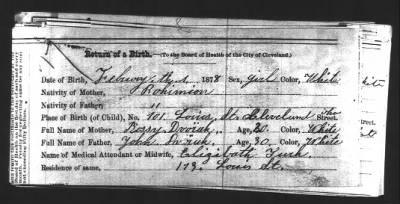 Return of a Birth.—(To the Board of Health of the City of Cleveland.)
Date of Birth, 1878 Sex, girl Color, White
Nativity of Mother, Bohimian
Nativity of Father, "
Place of Birth (of Child), No. 101 Louis St. Cleveland Street.
Full Name of Mother, Dvořak, Age, 20. Color, White
Full Name of Father, John Age, 30. Color, White
Name of Medical Attendant or Midwife, Eligibath
Residence of same, 113 Louis St.